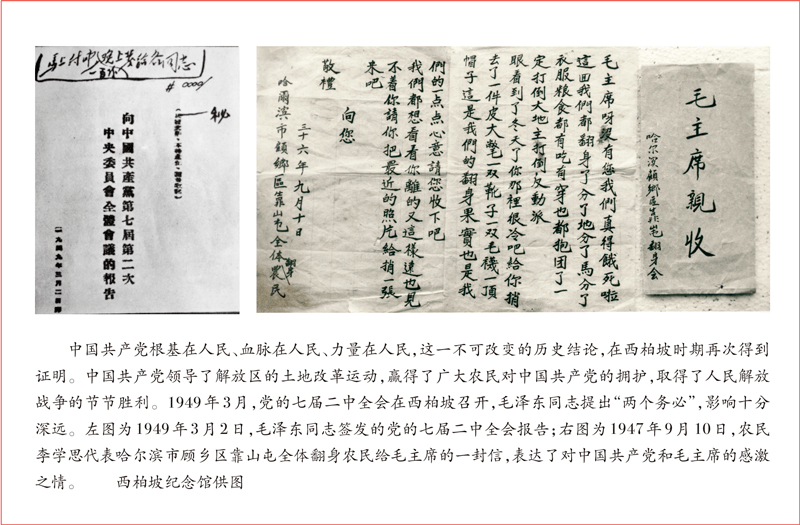 向中國共產黨第七屆第二次
中央委員會全體會議的報告
(一九四九年三月二日印)
毛主席親收
哈尔滨顧鄉區靠山屯翻身会
毛主席呀沒有您我們真得餓死啦
這回我們都翻身了分了地分了馬分了
衣服粮食都有吃有穿也都抱团了一
定打倒大地主打倒反动派
眼看到了冬天了你那裡很冷吧給你捎
去了一件皮大氅一双靴子一双毛襪一頂
帽子這是我們的翻身果實也是我
們的一点点心意請您收下吧
我們都想看看你離的又這樣遠也見
不着你請你把最近的照片給捎一張
来吧
向您
敬禮
三十六年九月十日
哈爾濱市顧鄉區靠山屯全体翻身農民
中国共产党根基在人民、血脉在人民、力量在人民,这一不可改变的历史结论,在西柏坡时期再次得到
证明。中国共产党领导了解放区的土地改革运动,赢得了广大农民对中国共产党的拥护,取得了人民解放
战争的节节胜利。1949年3月,党的七届二中全会在西柏坡召开,毛泽东同志提出“两个务必”,影响十分
深远。左图为1949年3月2日,毛泽东同志签发的党的七届二中全会报告;右图为1947年9月10日,农民
李学思代表哈尔滨市顾乡区靠山屯全体翻身农民给毛主席的一封信,表达了对中国共产党和毛主席的感激
之情。 西柏坡纪念馆供图